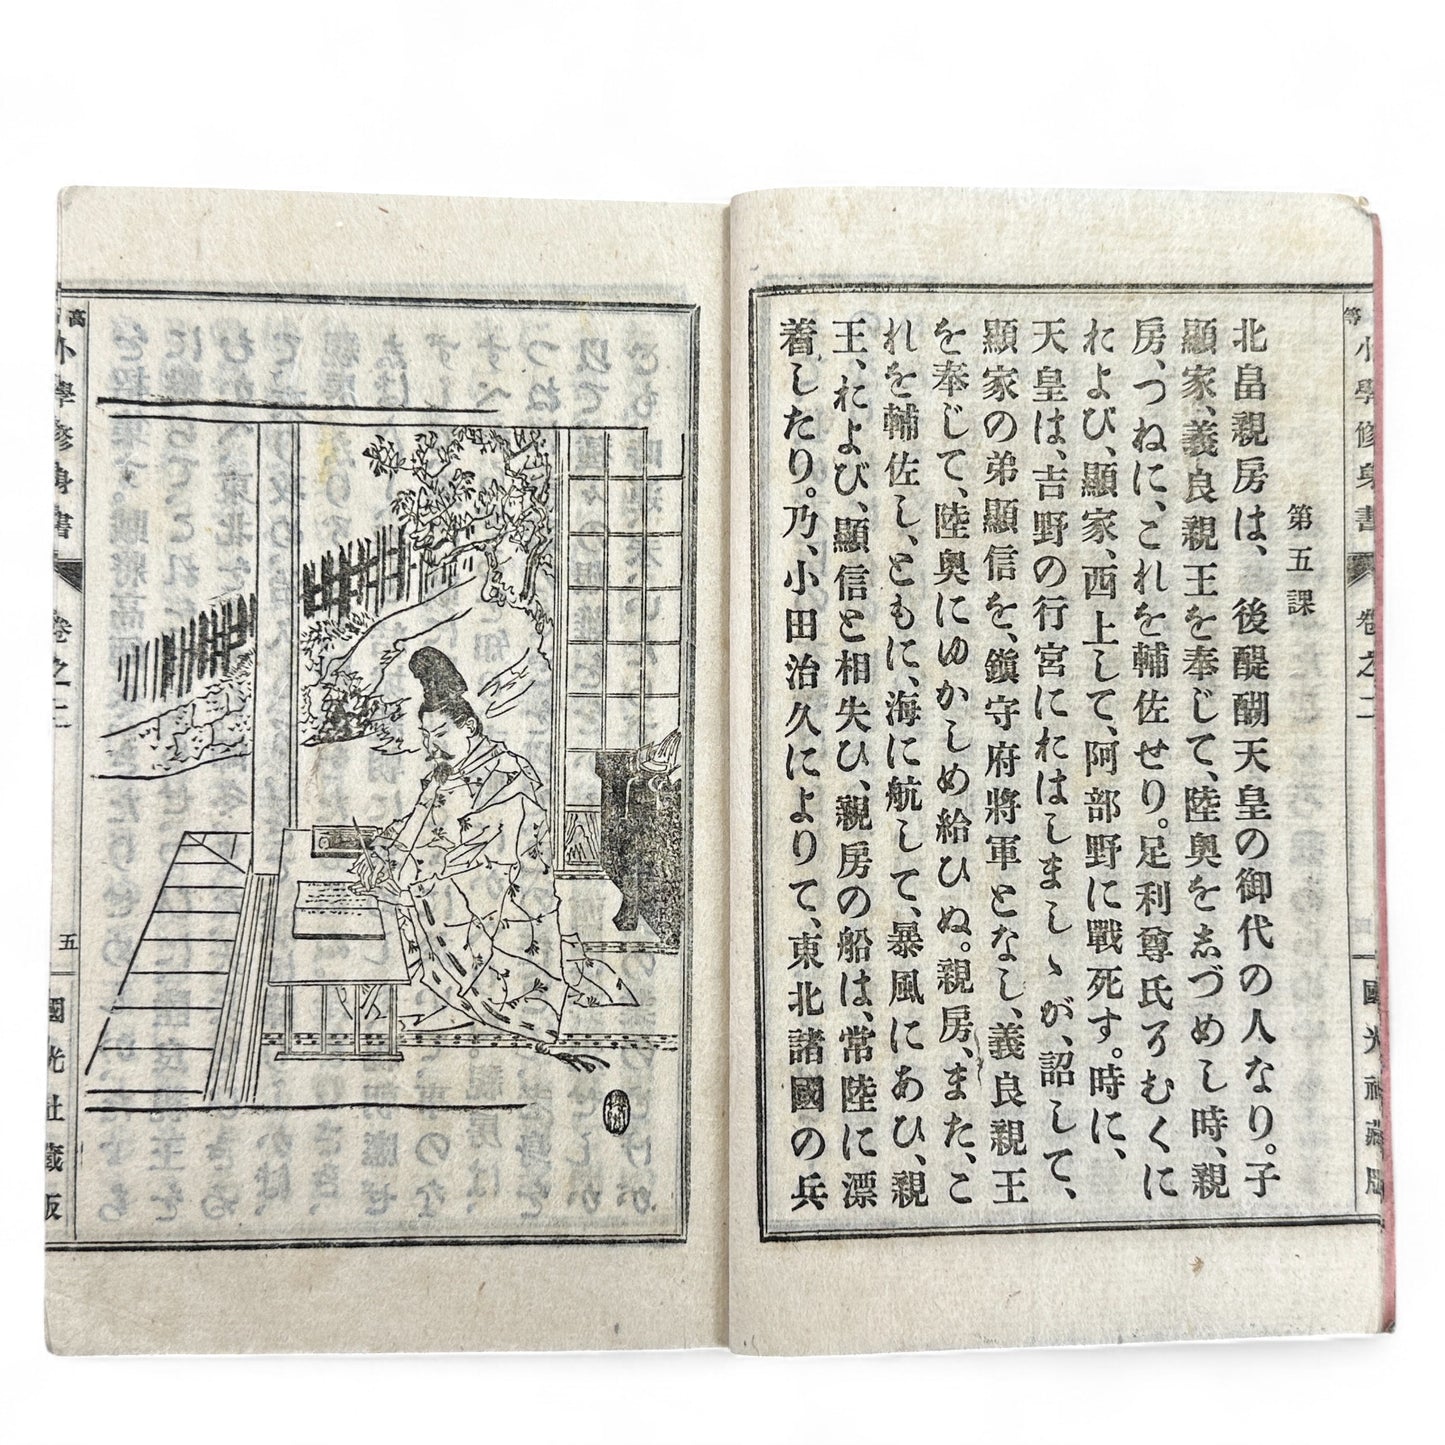 第五課
北畠親房は、後醍醐天皇の御代の人なり。子
顯家、義良親王を奉じて、陸奧をゑづめし時、親
房、つねに、これを輔佐せり。足利尊氏そむくに
および、顯家、西上して、阿部野に戰死す。時に、
天皇は、吉野の行宮におはしましゝが、詔して、
顯家の弟顯信を、鎭守府將軍となし、義良親王
を奉じて、陸奧にゆかしめ給ひぬ。親房、また、こ
れを輔佐し、ともに、海に航して、暴風にあひ、親
王、および、顯信と相失ひ、親房の船は、常陸に漂
着したり。乃、小田治久によりて、東北諸國の兵
等小學修身書
卷之二
國光社藏版
高
小學修身書
卷之二
五
國光社藏版